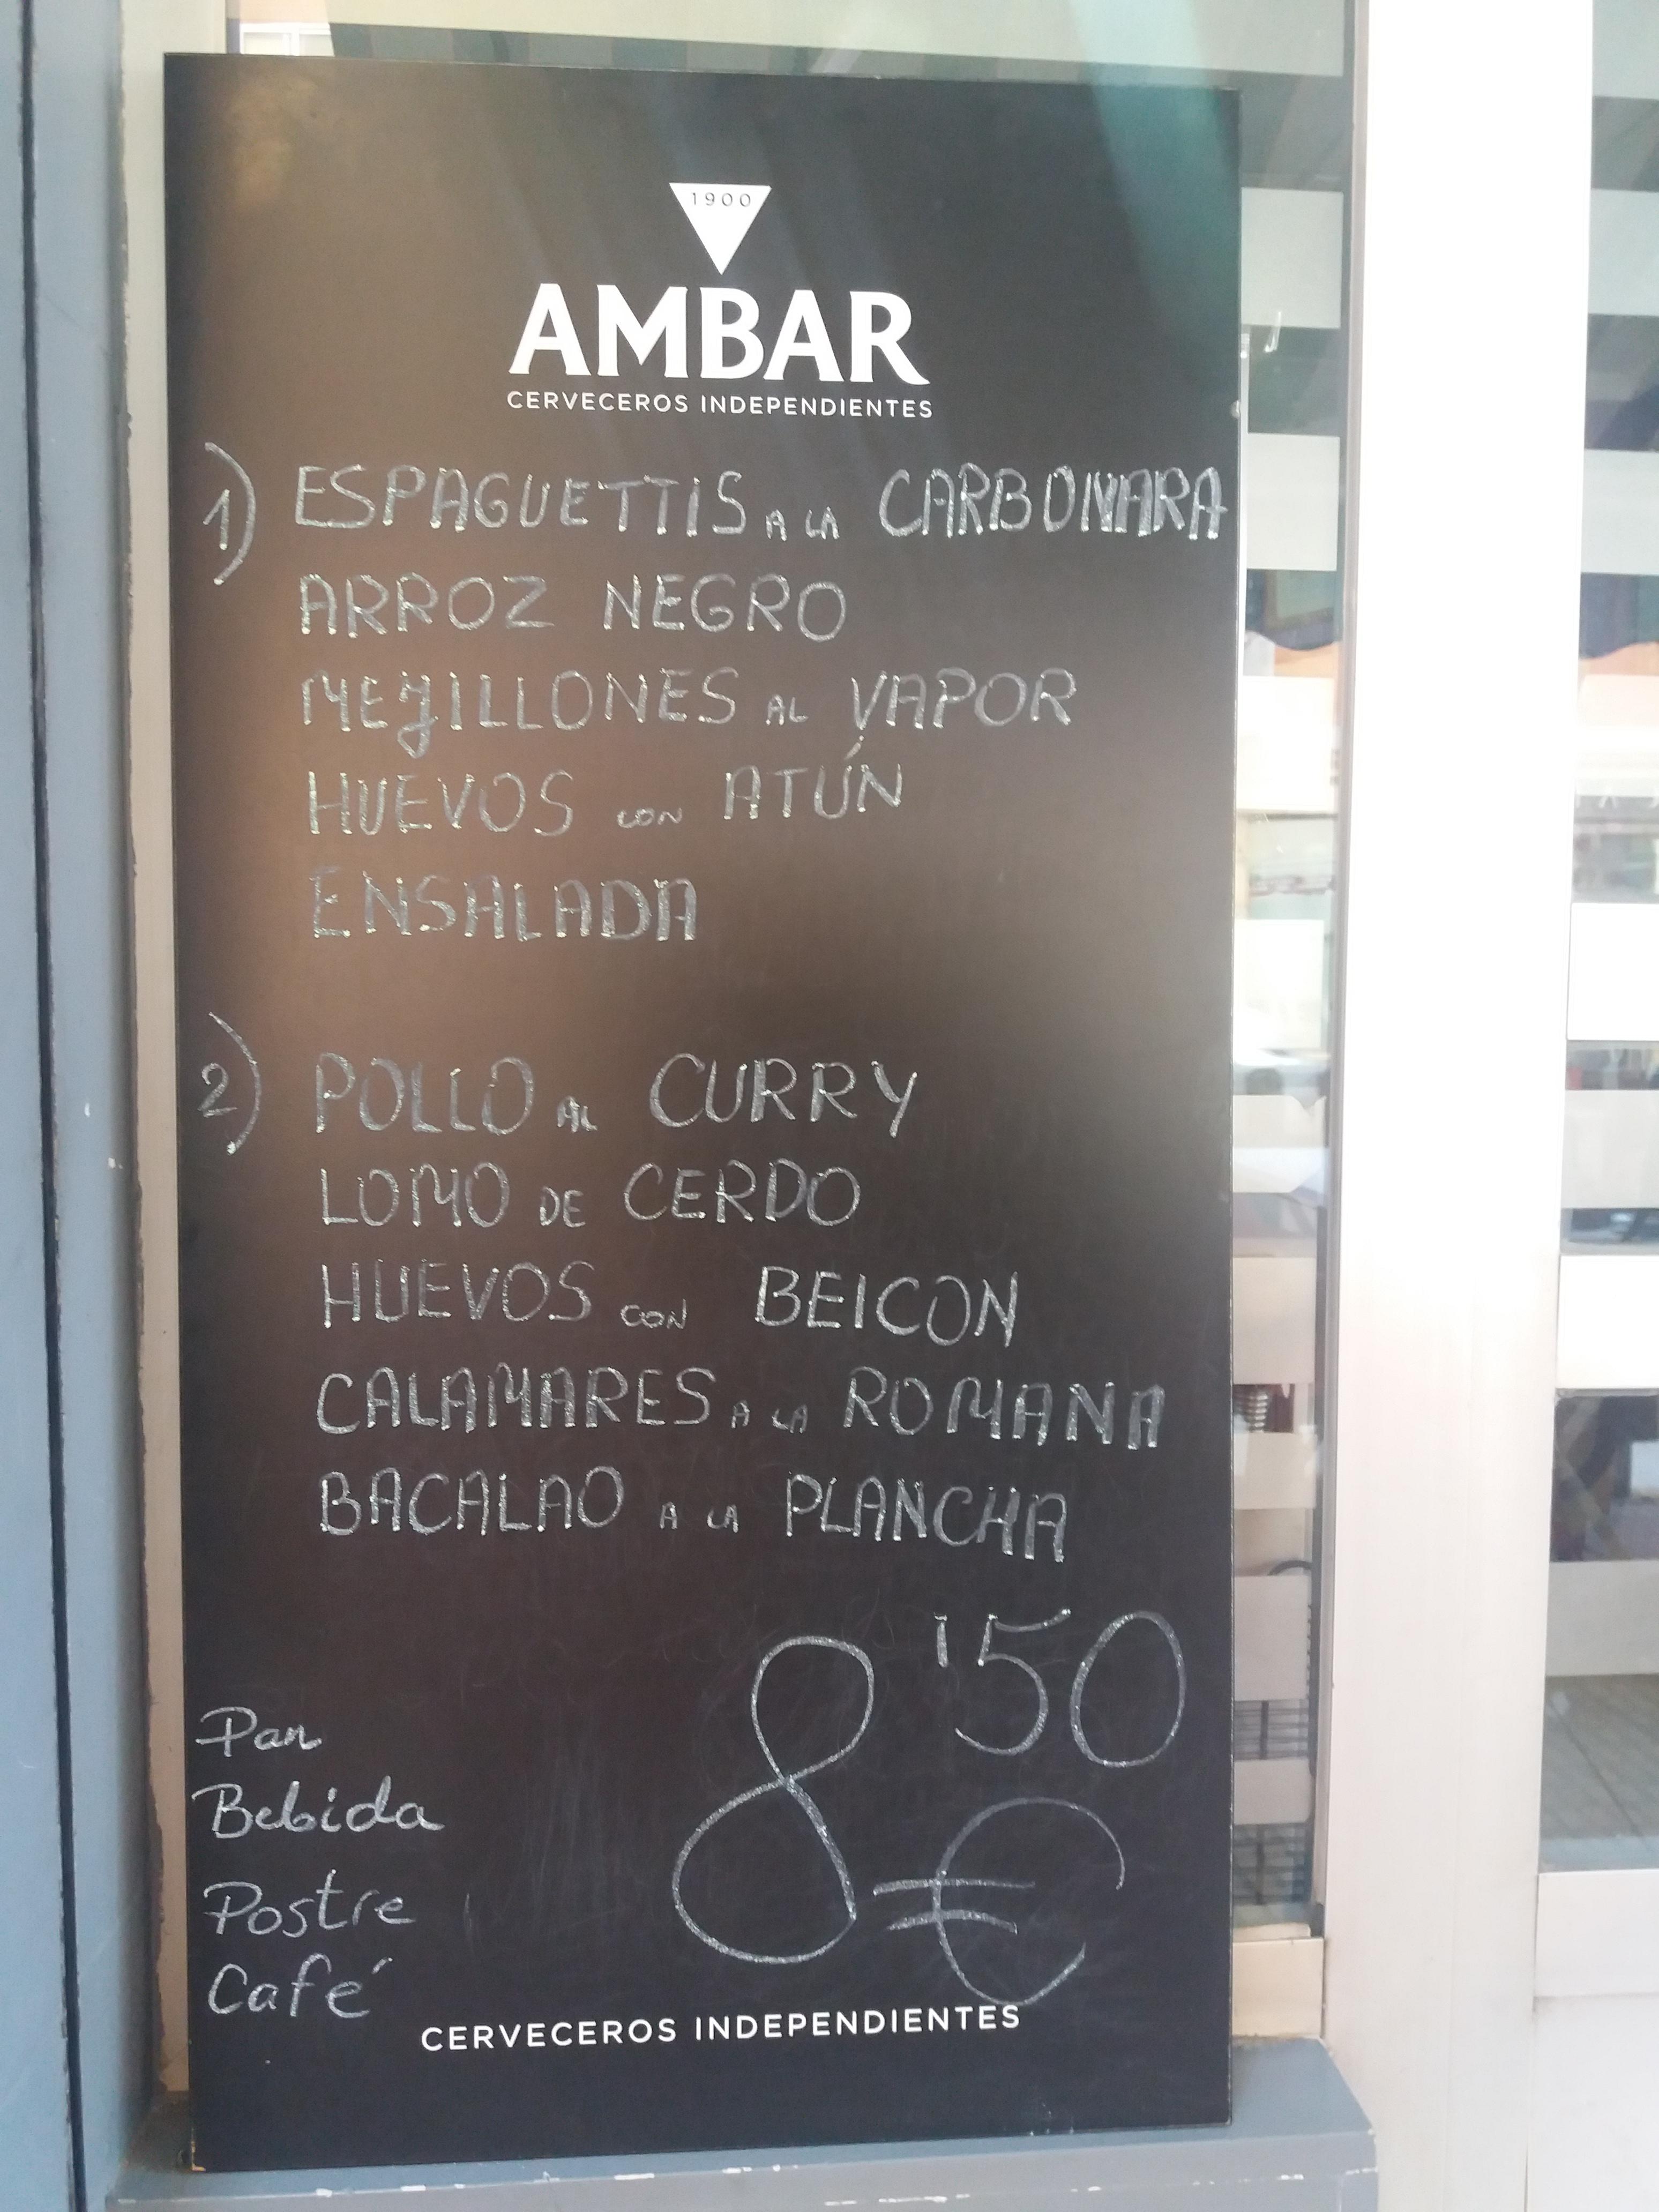 1900
AMBAR
CERVECEROS INDEPENDIENTES
1) ESPAGUETTIS A LA CARBONARA
ARROZ NEGRO
MEJILLONES AL VAPOR
HUEVOS CON ATÚN
ENSALADA
2) POLLO AL CURRY
LOMO DE CERDO
HUEVOS CON BEICON
CALAMARES A LA ROMANA
BACALAO A LA PLANCHA
8'50 €
Pan
Bebida
Postre
Café
CERVECEROS INDEPENDIENTES